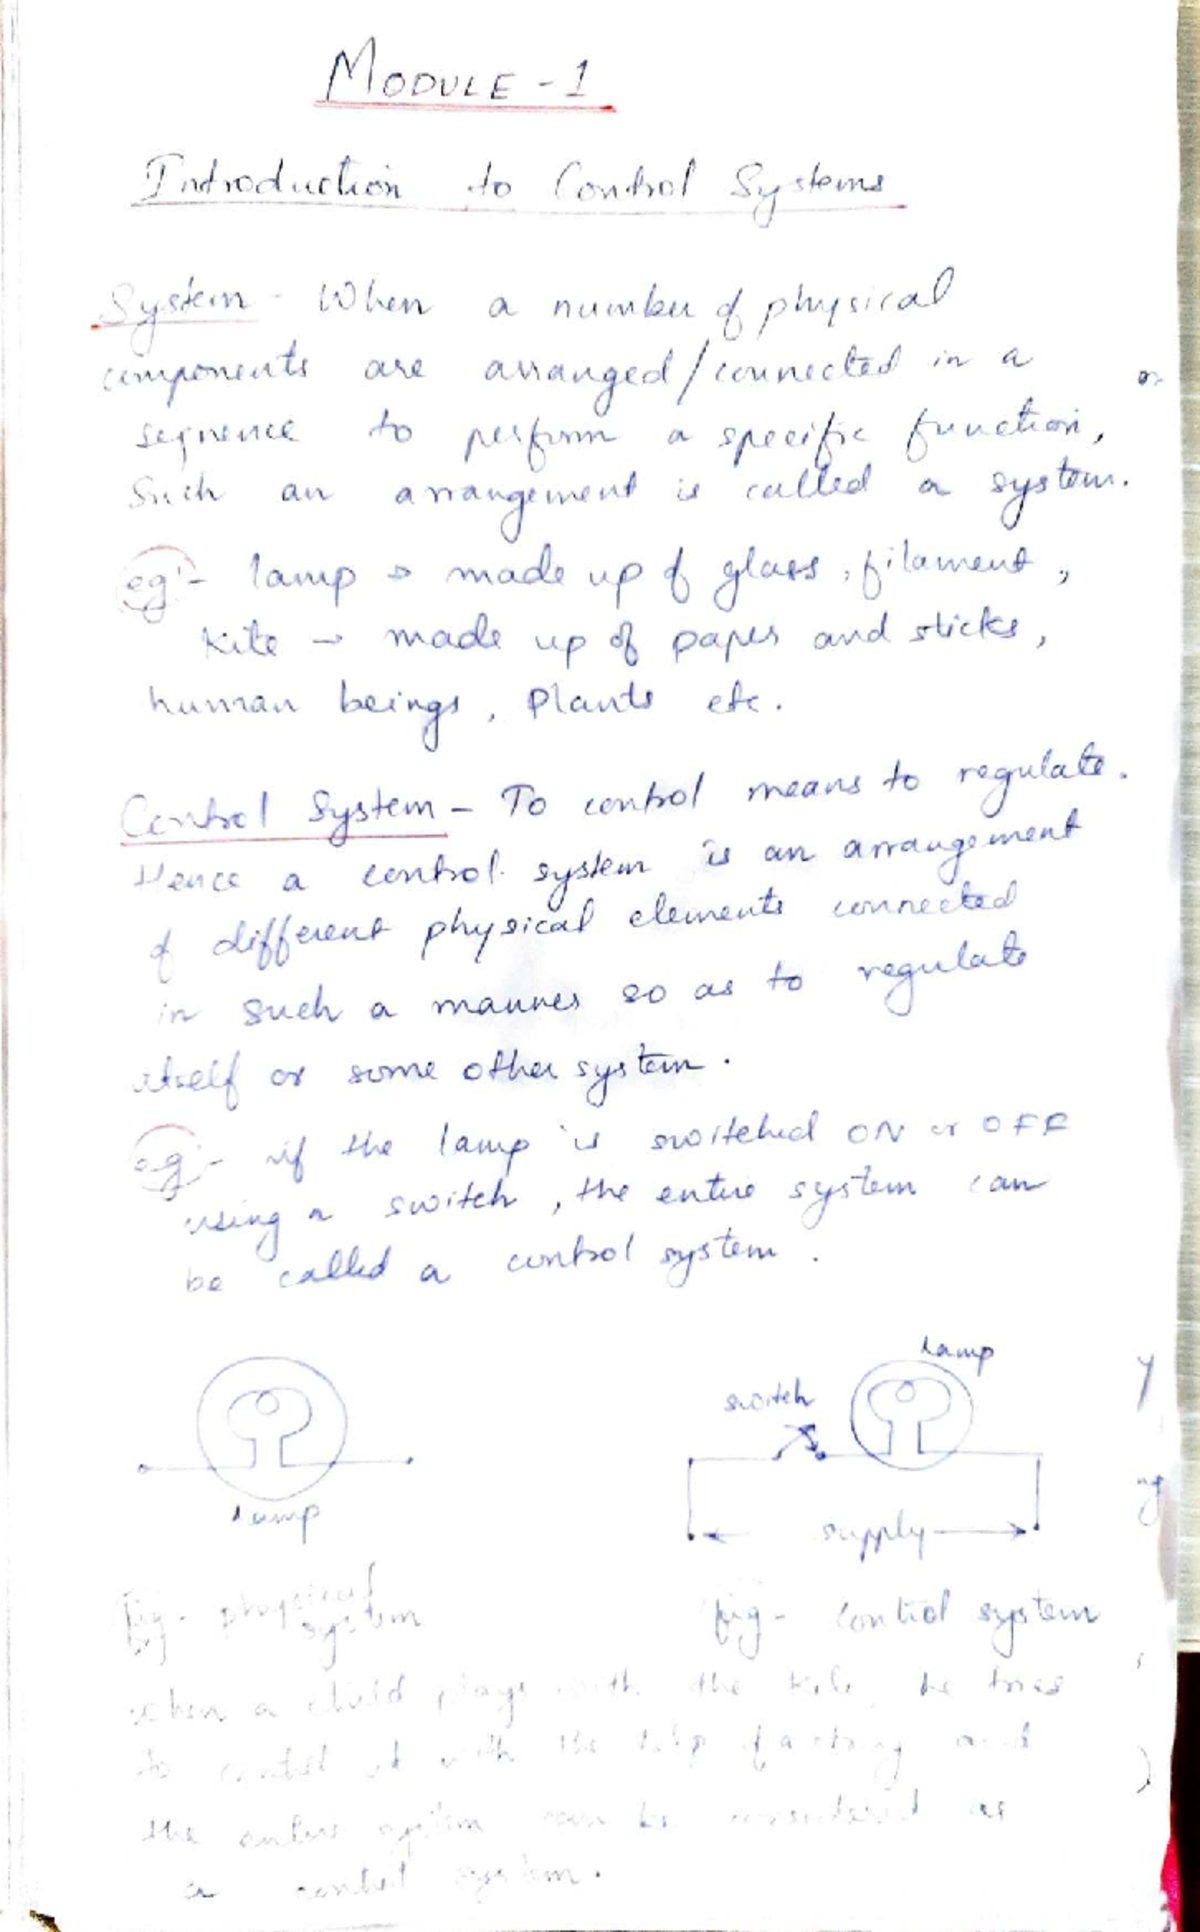 MODULE - 1
Introduction to Control Systems
System - When a number of physical
components are arranged/connected in a
sequence to perform a specific function,
Such an arrangement is called a system.
eg:- lamp → made up of glass, filament,
Kite → made up of paper and sticks,
human beings, Plants etc.
Control System - To control means to regulate.
Hence a control system is an arrangement
of different physical elements connected
in such a manner so as to regulate
itself or some other system.
eg:- if the lamp is switched ON or OFF
using a switch, the entire system can
be called a control system.
lamp
switch
lamp
supply
fig - physical system
fig - control system
when a child plays with the kite, he tries
to control it with the help of a string and
the entire system can be considered as
a control system.